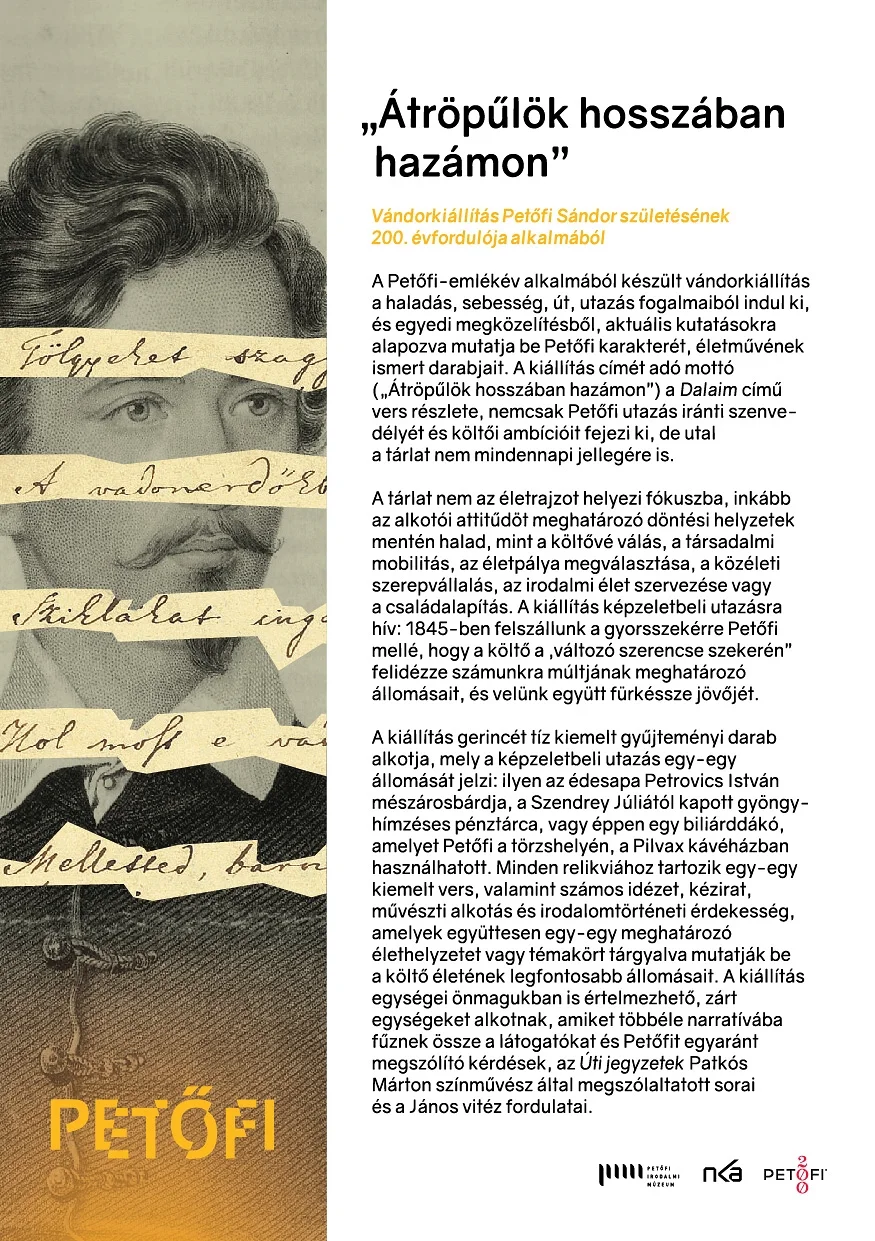 „Átröpűlök hosszában
hazámon”
Vándorkiállítás Petőfi Sándor születésének
200. évfordulója alkalmából
A Petőfi-emlékév alkalmából készült vándorkiállítás
a haladás, sebesség, út, utazás fogalmaiból indul ki,
és egyedi megközelítésből, aktuális kutatásokra
alapozva mutatja be Petőfi karakterét, életművének
ismert darabjait. A kiállítás címét adó mottó
(„Átröpűlök hosszában hazámon”) a Dalaim című
vers részlete, nemcsak Petőfi utazás iránti szenve-
délyét és költői ambícióit fejezi ki, de utal
a tárlat nem mindennapi jellegére is.
A tárlat nem az életrajzot helyezi fókuszba, inkább
az alkotói attitűdöt meghatározó döntési helyzetek
mentén halad, mint a költővé válás, a társadalmi
mobilitás, az életpálya megválasztása, a közéleti
szerepvállalás, az irodalmi élet szervezése vagy
a családalapítás. A kiállítás képzeletbeli utazásra
hív: 1845-ben felszállunk a gyorsszekérre Petőfi
mellé, hogy a költő a ‚változó szerencse szekerén”
felidézze számunkra múltjának meghatározó
állomásait, és velünk együtt fürkéssze jövőjét.
A kiállítás gerincét tíz kiemelt gyűjteményi darab
alkotja, mely a képzeletbeli utazás egy-egy
állomását jelzi: ilyen az édesapa Petrovics István
mészárosbárdja, a Szendrey Júliától kapott gyöngy-
hímzéses pénztárca, vagy éppen egy biliárddákó,
amelyet Petőfi a törzshelyén, a Pilvax kávéházban
használhatott. Minden relikviához tartozik egy-egy
kiemelt vers, valamint számos idézet, kézirat,
művészti alkotás és irodalomtörténeti érdekesség,
amelyek együttesen egy-egy meghatározó
élethelyzetet vagy témakört tárgyalva mutatják be
a költő életének legfontosabb állomásait. A kiállítás
egységei önmagukban is értelmezhető, zárt
egységeket alkotnak, amiket többéle narratívába
fűznek össze a látogatókat és Petőfit egyaránt
megszólító kérdések, az Úti jegyzetek Patkós
Márton színművész által megszólaltatott sorai
és a János vitéz fordulatai.
Tölgyeket szagg
A vadonerdőkb
Sziklákat inga
Hol most e vad
Melletted, baro
PETŐFI
PETŐFI
IRODALMI
MÚZEUM
nka
PETŐFI
200